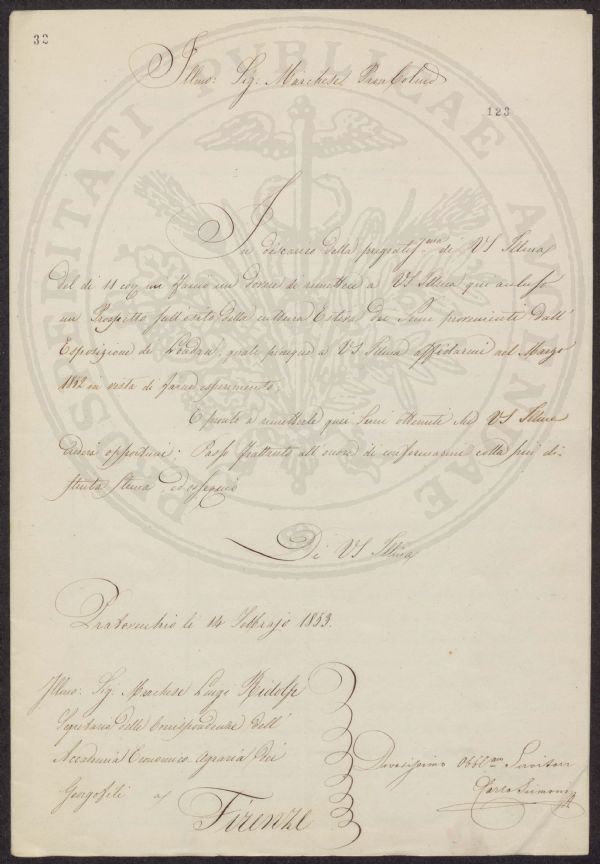 32
Illmo: Sig: Marchese Pron Colmo
123
In discarico della pregiatissma di VS Illma
del dì 11 corr. mi faccio un dovere di rimettere a VS Illma qui accluso
un Prospetto sull'esito della cultura Estiva dei Semi provenienti dall'
Esposizione di Londra, quali piacque a VS Illma affidarmi nel Marzo
1852 in vista di farne esperimento.
E pronto a rimetterle quei Semi ottenuti che VS Illma
crederà opportuni: Passo frattanto all'onore di confermarmi colla più di-
stinta stima, ed ossequio
Di VS Illma
Pratovecchio li 14 Febbrajo 1853.
Illmo: Sig: Marchese Luigi Ridolfi
Segretario delle Corrispondenze dell'
Accademia Economico-Agraria dei
Georgofili a
Firenze
Devotissimo Obblmo Servitore
Carlo Siemoni
PROSPERITATI PUBLICAE AUGENDAE